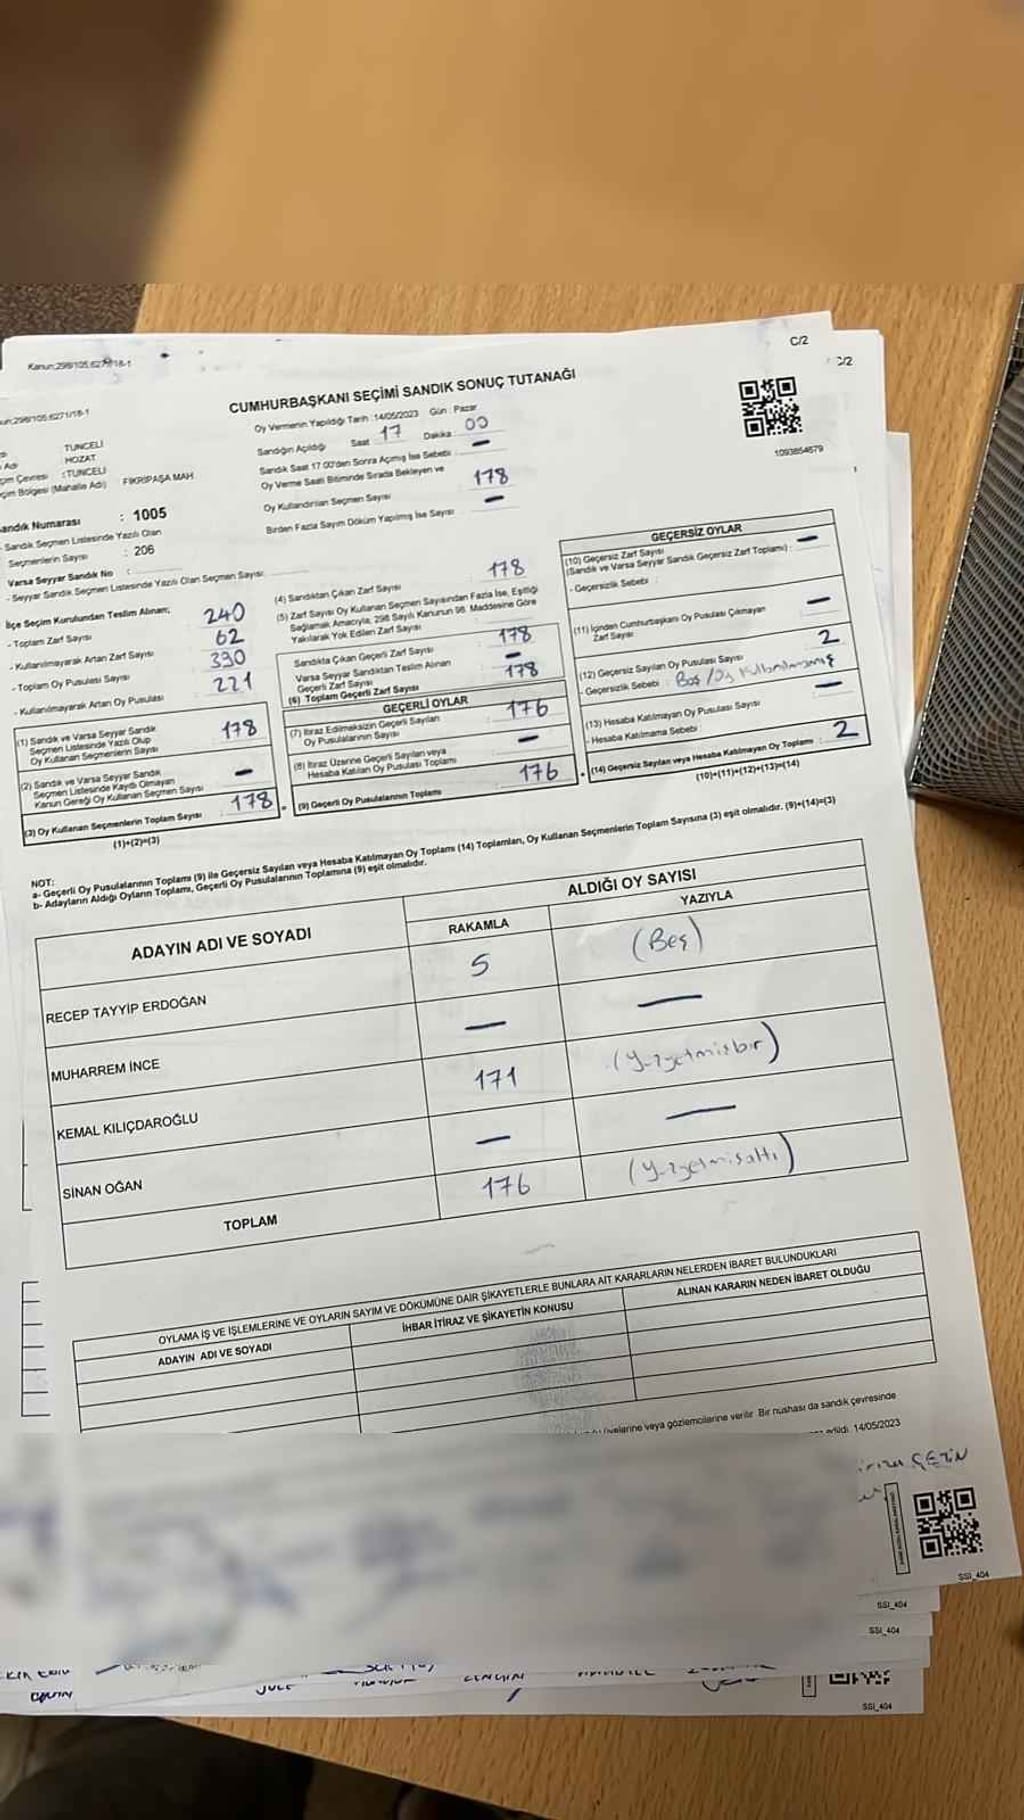 C/2
C/2
Kanun:298/105.6271/18-1
CUMHURBAŞKANI SEÇİMİ SANDIK SONUÇ TUTANAĞI
Oy Vermenin Yapıldığı Tarih :14/05/2023 Gün : Pazar
Sandığın Açıldığı Saat 17 Dakika 00
Sandık Saat 17.00'den Sonra Açılmış İse Sebebi —
Oy Verme Saati Bitiminde Sırada Bekleyen ve
Oy Kullandırılan Seçmen Sayısı 178
Birden Fazla Sayım Döküm Yapılmış İse Sayısı —
1093854679
TUNCELİ
HOZAT
:TUNCELİ
(Mahalle Adı) FİKRİPAŞA MAH
Sandık Numarası : 1005
- Sandık Seçmen Listesinde Yazılı Olan
Seçmenlerin Sayısı : 206
Varsa Seyyar Sandık No :
- Seyyar Sandık Seçmen Listesinde Yazılı Olan Seçmen Sayısı:
İlçe Seçim Kurulundan Teslim Alınan;
- Toplam Zarf Sayısı 240
- Kullanılmayarak Artan Zarf Sayısı 62
- Toplam Oy Pusulası Sayısı 390
- Kullanılmayarak Artan Oy Pusulası 221
(1) Sandık ve Varsa Seyyar Sandık
Seçmen Listesinde Yazılı Olup
Oy Kullanan Seçmenlerin Sayısı 178
(2) Sandık ve Varsa Seyyar Sandık
Seçmen Listesinde Kaydı Olmayan
Kanun Gereği Oy Kullanan Seçmen Sayısı —
(3) Oy Kullanan Seçmenlerin Toplam Sayısı 178
(1)+(2)=(3)
(4) Sandıktan Çıkan Zarf Sayısı 178
(5) Zarf Sayısı Oy Kullanan Seçmen Sayısından Fazla İse, Eşitliği
Sağlamak Amacıyla; 298 Sayılı Kanunun 98. Maddesine Göre
Yakılarak Yok Edilen Zarf Sayısı
Sandıkta Çıkan Geçerli Zarf Sayısı 178
Varsa Seyyar Sandıktan Teslim Alınan
Geçerli Zarf Sayısı —
(6) Toplam Geçerli Zarf Sayısı 178
GEÇERLİ OYLAR
(7) İtiraz Edilmeksizin Geçerli Sayılan
Oy Pusulalarının Sayısı 176
(8) İtiraz Üzerine Geçerli Sayılan veya
Hesaba Katılan Oy Pusulası Toplamı —
(9) Geçerli Oy Pusulalarının Toplamı 176
GEÇERSİZ OYLAR
(10) Geçersiz Zarf Sayısı
(Sandık ve Varsa Seyyar Sandık Geçersiz Zarf Toplamı) : —
- Geçersizlik Sebebi :
(11) İçinden Cumhurbaşkanı Oy Pusulası Çıkmayan
Zarf Sayısı —
(12) Geçersiz Sayılan Oy Pusulası Sayısı 2
- Geçersizlik Sebebi : Boş/Oy Kullanılmamış
(13) Hesaba Katılmayan Oy Pusulası Sayısı —
- Hesaba Katılmama Sebebi
(14) Geçersiz Sayılan veya Hesaba Katılmayan Oy Toplamı : 2
(10)+(11)+(12)+(13)=(14)
NOT:
a- Geçerli Oy Pusulalarının Toplamı (9) ile Geçersiz Sayılan veya Hesaba Katılmayan Oy Toplamı (14) Toplamları, Oy Kullanan Seçmenlerin Toplam Sayısına (3) eşit olmalıdır. (9)+(14)=(3)
b- Adayların Aldığı Oyların Toplamı, Geçerli Oy Pusulalarının Toplamına (9) eşit olmalıdır.
ADAYIN ADI VE SOYADI
ALDIĞI OY SAYISI
RAKAMLA YAZIYLA
RECEP TAYYİP ERDOĞAN 5 (Beş)
MUHARREM İNCE — —
KEMAL KILIÇDAROĞLU 171 (Yüzyetmişbir)
SİNAN OĞAN — —
TOPLAM 176 (Yüzyetmişaltı)
OYLAMA İŞ VE İŞLEMLERİNE VE OYLARIN SAYIM VE DÖKÜMÜNE DAİR ŞİKAYETLERLE BUNLARA AİT KARARLARIN NELERDEN İBARET BULUNDUKLARI
ADAYIN ADI VE SOYADI İHBAR İTİRAZ VE ŞİKAYETİN KONUSU ALINAN KARARIN NEDEN İBARET OLDUĞU
veya gözlemcilerine verilir. Bir nüshası da sandık çevresinde
14/05/2023
ÇETİN
SSI_404
SSI_404
SSI_404
SSI_404